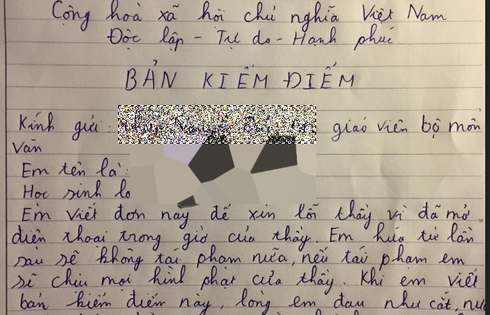 Cộng hoà xã hội chủ nghĩa Việt Nam
Độc lập - Tự do - Hạnh phúc
BẢN KIỂM ĐIỂM
Kính gửi: giáo viên bộ môn
Văn
Em tên là:
Học sinh lớ
Em viết đơn này để xin lỗi thầy vì đã mở
điện thoại trong giờ của thầy. Em hứa từ lần
sau sẽ không tái phạm nữa, nếu tái phạm em
sẽ chịu mọi hình phạt của thầy. Khi em viết
bản kiểm điểm này, lòng em đau như cắt, nư